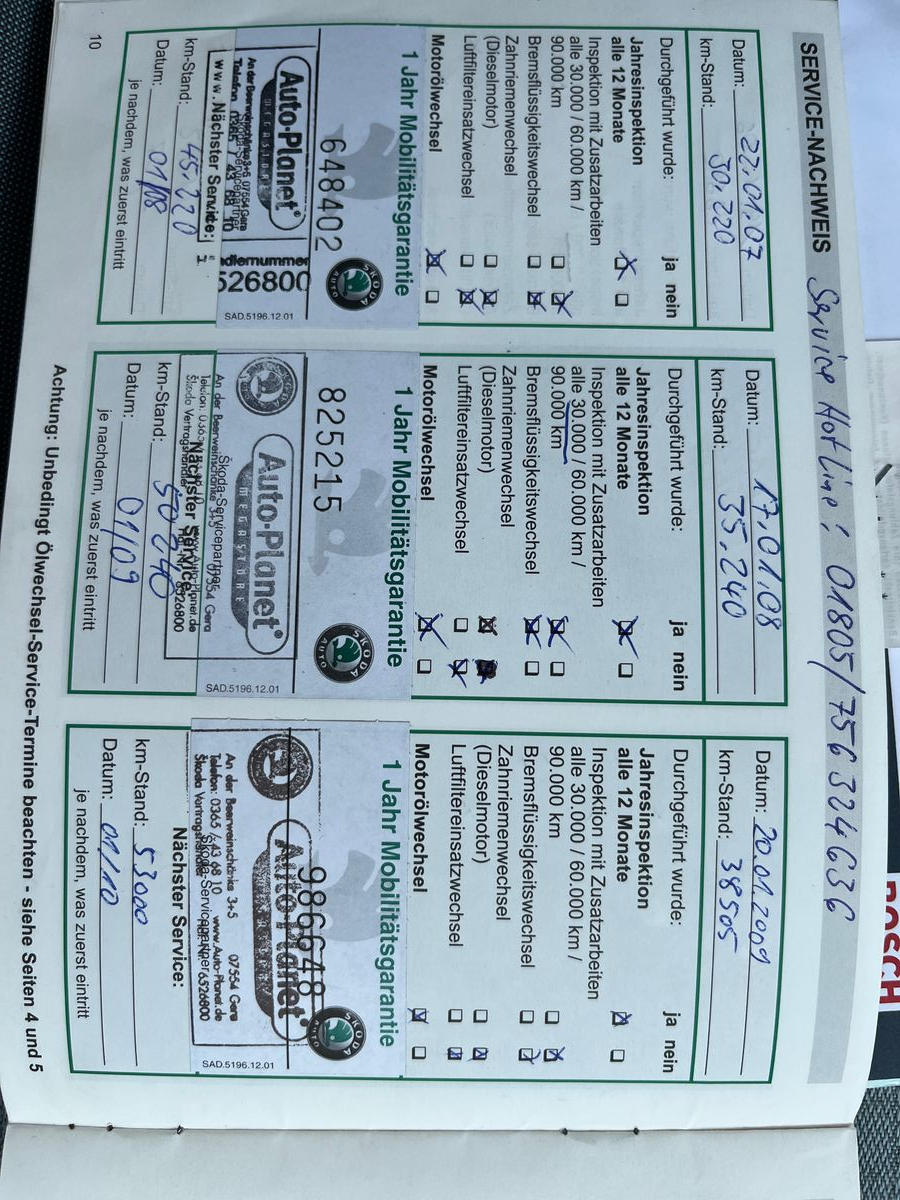 SERVICE-NACHWEIS Service Hotline: 01805/756324636
Datum: 22.01.07
km-Stand: 30.220
Durchgeführt wurde: ja nein
Jahresinspektion
alle 12 Monate
Inspektion mit Zusatzarbeiten
alle 30.000 / 60.000 km /
90.000 km
Bremsflüssigkeitswechsel
Zahnriemenwechsel
(Dieselmotor)
Luftfiltereinsatzwechsel
Motorölwechsel
1 Jahr Mobilitätsgarantie
SKODA AUTO
648402
Auto-Planet
MEGASTORE
07554 Gera
Händlernummer
526800
SAD.5196.12.01
www.
Nächster Service:
km-Stand: 45.220
Datum: 01/08
je nachdem, was zuerst eintritt
Datum: 17.01.08
km-Stand: 35.240
Durchgeführt wurde: ja nein
Jahresinspektion
alle 12 Monate
Inspektion mit Zusatzarbeiten
alle 30.000 / 60.000 km /
90.000 km
Bremsflüssigkeitswechsel
Zahnriemenwechsel
(Dieselmotor)
Luftfiltereinsatzwechsel
Motorölwechsel
1 Jahr Mobilitätsgarantie
SKODA AUTO
825215
Auto-Planet
MEGASTORE
Škoda-Servicepartner
An der Beerweinschänke 3+5 07554 Gera
www.Auto-Planet.de
Škoda Vertragshändler Nr. 6526800
SAD.5196.12.01
Nächster Service:
km-Stand: 50.240
Datum: 01/09
je nachdem, was zuerst eintritt
Datum: 20.01.2009
km-Stand: 38505
Durchgeführt wurde: ja nein
Jahresinspektion
alle 12 Monate
Inspektion mit Zusatzarbeiten
alle 30.000 / 60.000 km /
90.000 km
Bremsflüssigkeitswechsel
Zahnriemenwechsel
(Dieselmotor)
Luftfiltereinsatzwechsel
Motorölwechsel
1 Jahr Mobilitätsgarantie
SKODA AUTO
986648
Auto-Planet
Škoda-Servicepartner
An der Beerweinschänke 3+5 07554 Gera
Telefon: 0365 / 43 68 10 www.Auto-Planet.de
Škoda Vertragshändler 6526800
SAD.5196.12.01
Nächster Service:
km-Stand: 53000
Datum: 01/10
je nachdem, was zuerst eintritt
Achtung: Unbedingt Ölwechsel-Service-Termine beachten - siehe Seiten 4 und 5
10
BOSCH